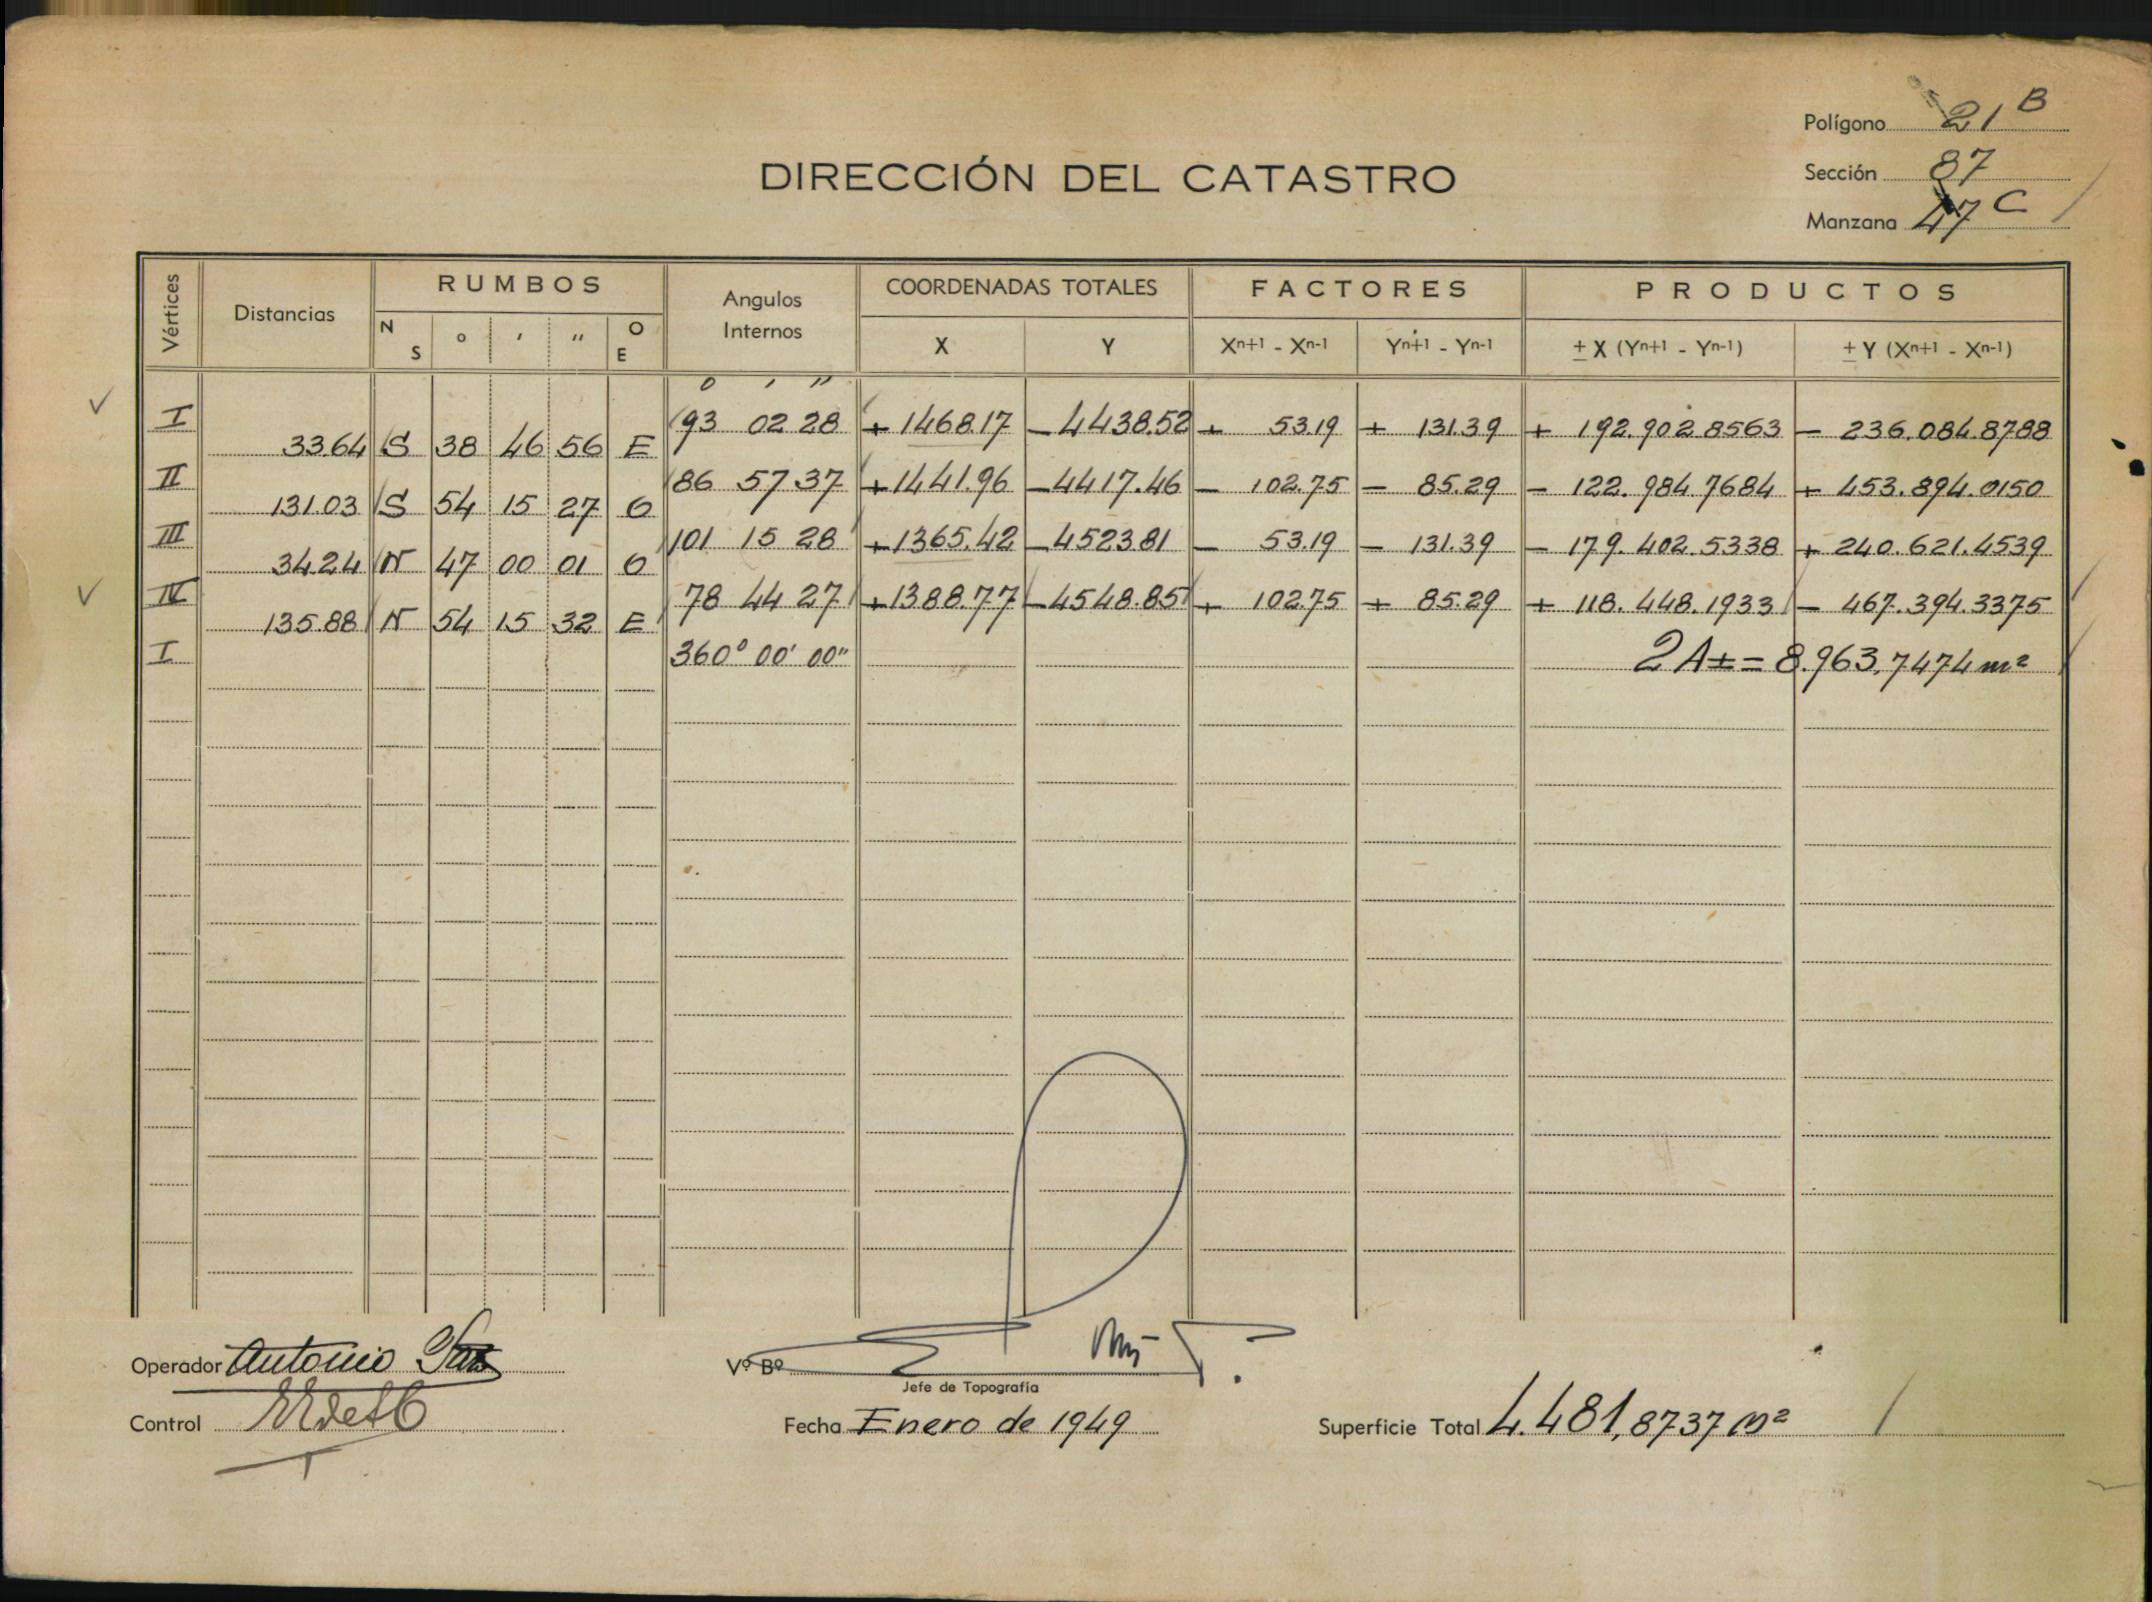 Polígono 21 B
DIRECCIÓN DEL CATASTRO
Sección 87
Manzana 47 C
Vértices Distancias RUMBOS Angulos Internos COORDENADAS TOTALES FACTORES PRODUCTOS
N S o ' " O E X Y Xn+1 - Xn-1 Yn+1 - Yn-1 ± X (Yn+1 - Yn-1) ± Y (Xn+1 - Xn-1)
o ' "
I 93 02 28 +1468.17 -4438.52 + 53.19 + 131.39 + 192.902.8563 - 236.084.8788
33.64 S 38 46 56 E
II 86 57 37 +1441.96 -4417.46 - 102.75 - 85.29 - 122.984.7684 + 453.894.0150
131.03 S 54 15 27 O
III 101 15 28 +1365.42 -4523.81 - 53.19 - 131.39 - 179.402.5338 + 240.621.4539
34.24 N 47 00 01 O
IV 78 44 27 +1388.77 -4548.85 + 102.75 + 85.29 + 118.448.1933 - 467.394.3375
135.88 N 54 15 32 E
I 360° 00' 00" 2A± = 8.963,7474 m²
Operador Antonio
Vº Bº
Jefe de Topografía
Control
Fecha Enero de 1949
Superficie Total 4.481,8737 m²